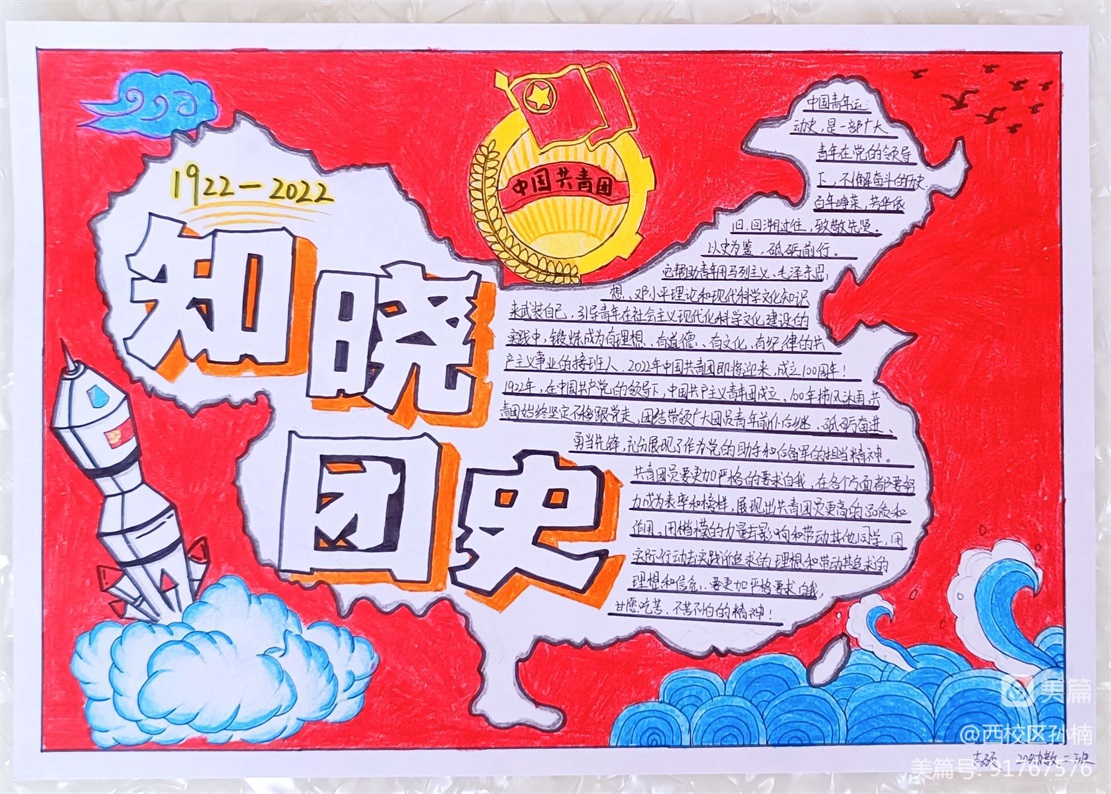 1922-2022
知晓
团史
中国共青团
中国青年运
动史,是一部广大
青年在党的领导
下,不懈奋斗的历史.
百年峥荣,芳华依
旧.回溯过往,致敬先贤.
以史为鉴,砥砺前行.
它帮助青年用马列主义、毛泽东思
想、邓小平理论和现代科学文化知识
来武装自己,引导青年在社会主义现代化科学文化建设的
实践中,锻炼成为有理想、有道德、有文化、有纪律的共
产主义事业的接班人,2022年中国共青团即将迎来,成立100周年!
1922年,在中国共产党的领导下,中国共产主义青年团成立,100年栉风沐雨,共
青团始终坚定不移跟党走,团结带领广大团员青年前仆后继、砥砺奋进、
勇当先锋,充分展现了作为党的助手和后备军的担当精神。
共青团员要更加严格的要求自我,在各个方面都要努
力成为表率和榜样,展现出共青团员更高的品质和
作用,用榜样的力量去影响和带动其他同学,用
实际行动去实践所追求的理想和带动其追求的
理想和信念,要更加严格要求自我,
甘愿吃苦,不苦不怕的精神!
美篇
@西校区孙楠
美篇号: 91767576
二班